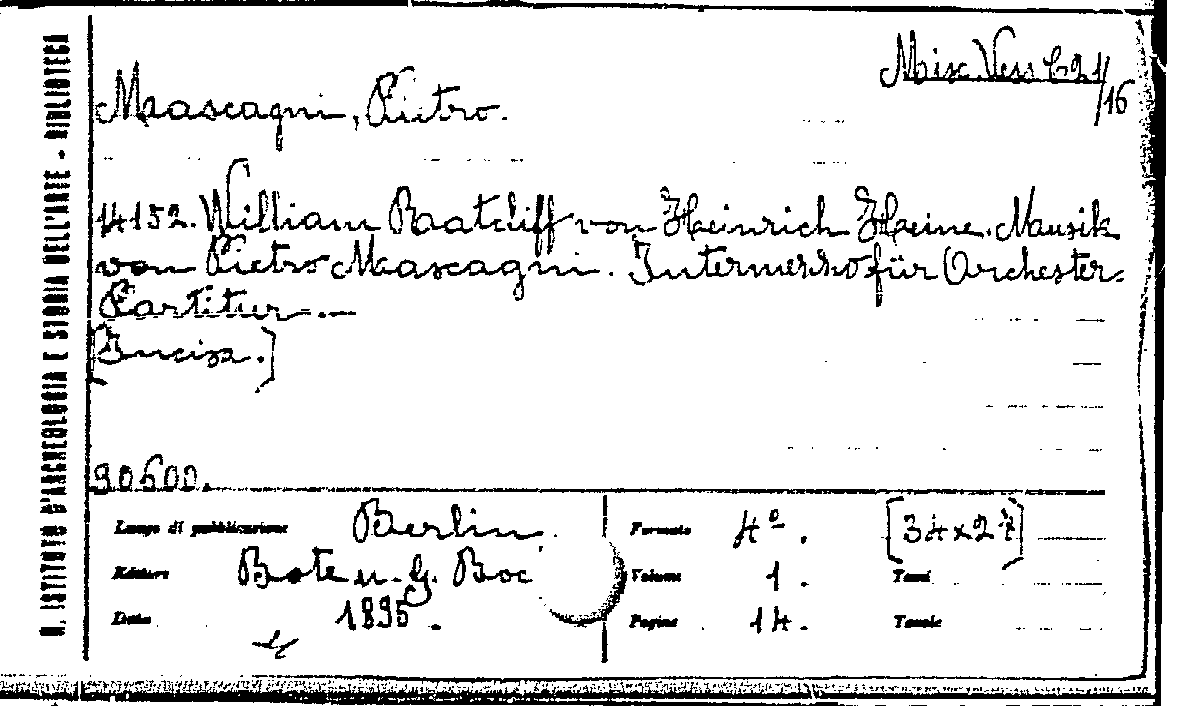 R. ISTITUTO D'ARCHEOLOGIA E STORIA DELL'ARTE - BIBLIOTECA
Misc. Vess C21/16
Mascagni, Pietro.
14152. William Ratcliff von Heinrich Heine. Musik
von Pietro Mascagni. Intermezzo für Orchester-
Partitur.—
[Incisa.]
90600.
Luogo di pubblicazione Berlin.
Editore Bote u. G. Boc
Data 1895.
Formato 4º. [34x27]
Volume 1. Tomi
Pagine 14. Tavole